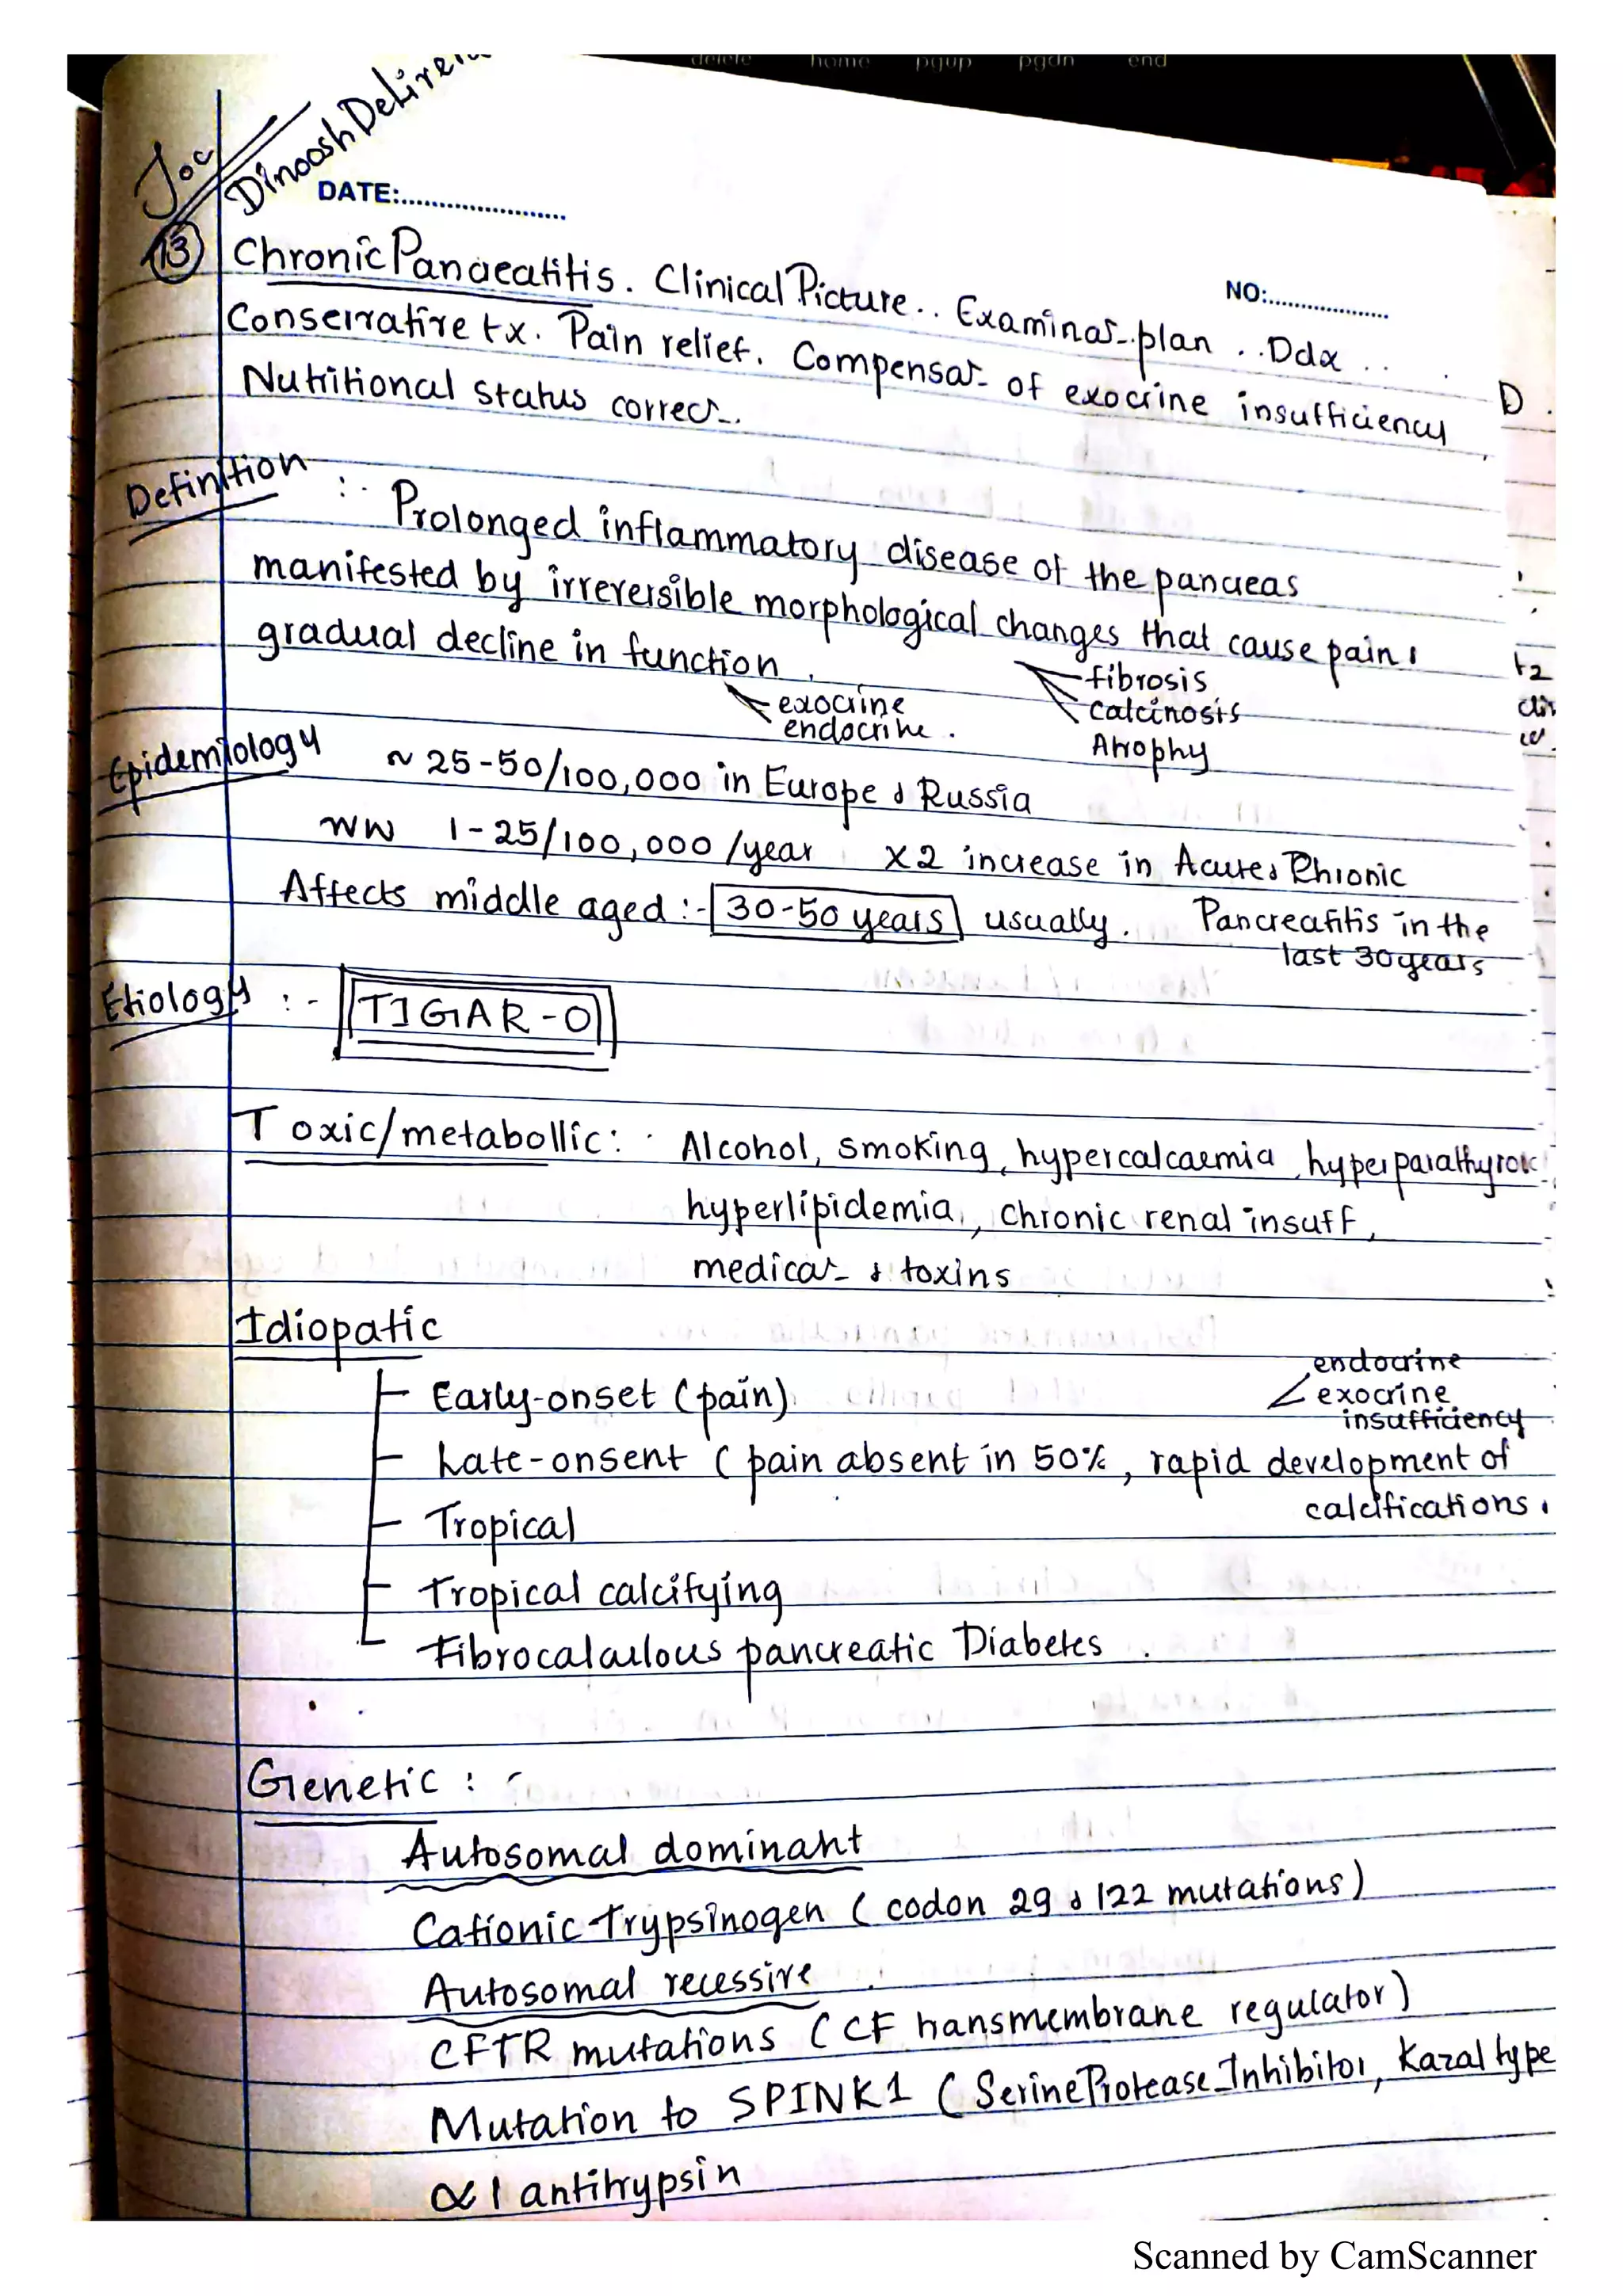 delete home pgup pgdn end
Joc
Dinoosh
DATE:
NO:
13 Chronic Pancreatitis. Clinical Picture.. Examinat-plan .. Ddx ..
Conservative tx. Pain relief. Compensat- of exocrine insufficiency
Nutritional status correct-.
D
Definition :- Prolonged inflammatory disease of the pancreas
manifested by irreversible morphological changes that cause pain &
gradual decline in function.
fibrosis
calcinosis
Atrophy
exocrine
endocrine.
Epidemiology ~ 25-50/100,000 in Europe & Russia
WW 1-25/100,000/year x2 increase in Acute & Chronic
Pancreatitis in the
last 30 years
Affects middle aged :- 30-50 years usually.
Etiology :- TIGAR-O
Toxic/metabollic: Alcohol, smoking, hypercalcaemia, hyperparathyroi
hyperlipidemia, chronic renal insuff,
medicat- & toxins
Idiopatic
Early-onset (pain)
endocrine
exocrine
insufficiency
Late-onsent (pain absent in 50%, rapid development of
calcifications.
Tropical
Tropical calcifying
Fibrocalculous pancreatic Diabetes.
Genetic :-
Autosomal dominant
Cationic Trypsinogen (codon 29 & 122 mutations)
Autosomal recessive
CFTR mutations (CF transmembrane regulator)
Mutation to SPINK1 (Serine Protease Inhibitor, Kazal type
α1 antitrypsin
Scanned by CamScanner